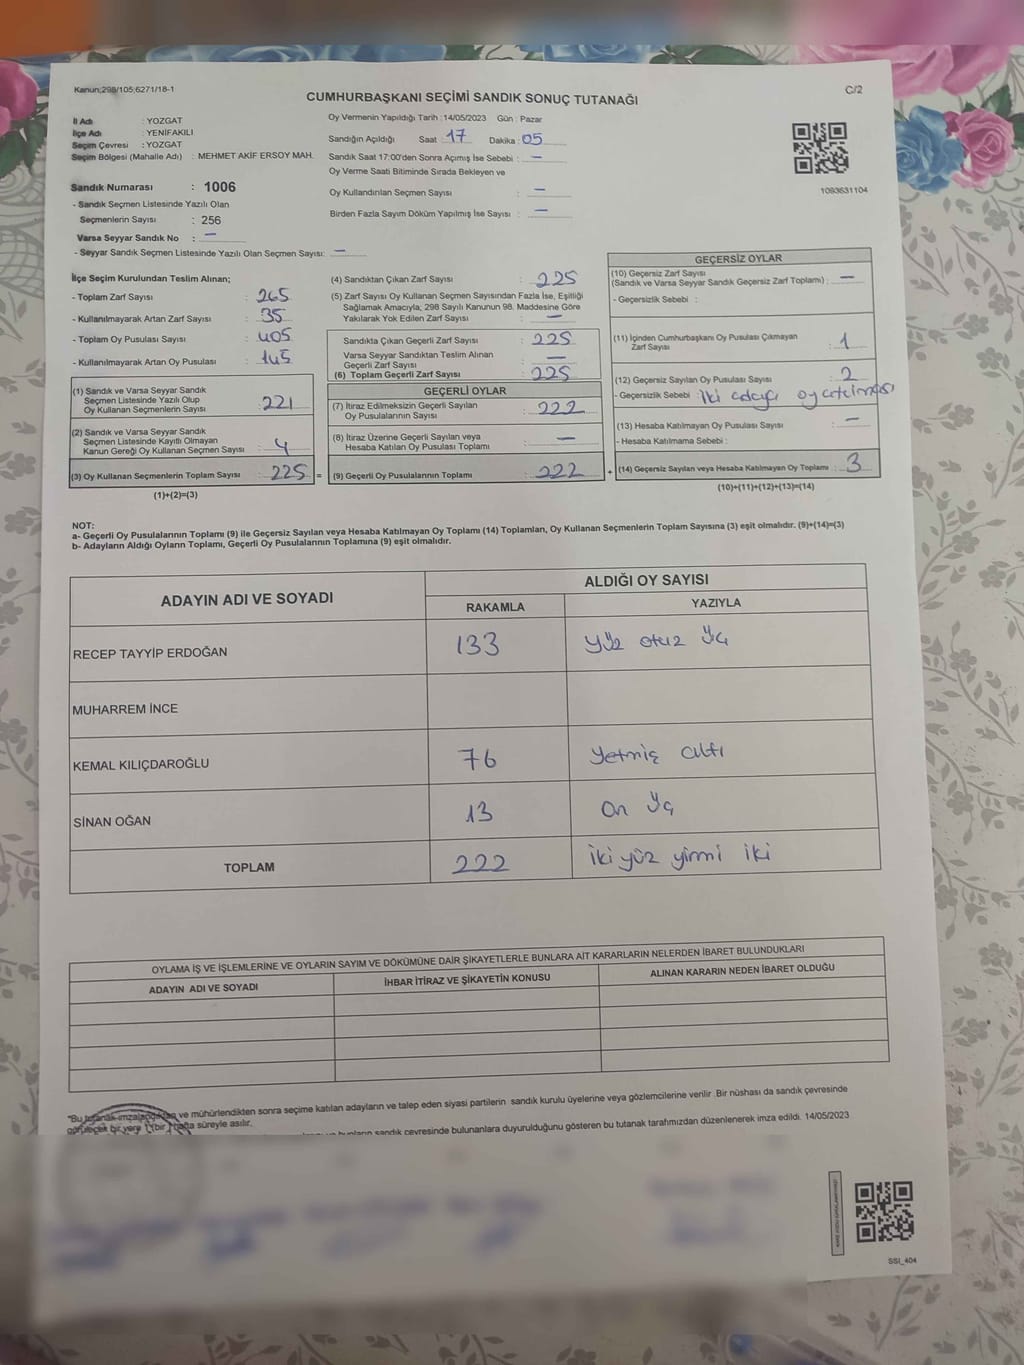 Kanun;298/105;6271/18-1
C/2
CUMHURBAŞKANI SEÇİMİ SANDIK SONUÇ TUTANAĞI
İl Adı : YOZGAT
İlçe Adı : YENİFAKILI
Seçim Çevresi : YOZGAT
Seçim Bölgesi (Mahalle Adı) : MEHMET AKİF ERSOY MAH.
Sandık Numarası : 1006
- Sandık Seçmen Listesinde Yazılı Olan
Seçmenlerin Sayısı : 256
Varsa Seyyar Sandık No : —
- Seyyar Sandık Seçmen Listesinde Yazılı Olan Seçmen Sayısı: —
Oy Vermenin Yapıldığı Tarih :14/05/2023 Gün : Pazar
Sandığın Açıldığı Saat : 17 Dakika : 05
Sandık Saat 17:00'den Sonra Açımış İse Sebebi : —
Oy Verme Saati Bitiminde Sırada Bekleyen ve
Oy Kullandırılan Seçmen Sayısı : —
Birden Fazla Sayım Döküm Yapılmış İse Sayısı : —
1093631104
İlçe Seçim Kurulundan Teslim Alınan;
- Toplam Zarf Sayısı : 265
- Kullanılmayarak Artan Zarf Sayısı : 35
- Toplam Oy Pusulası Sayısı : 405
- Kullanılmayarak Artan Oy Pusulası : 145
(1) Sandık ve Varsa Seyyar Sandık
Seçmen Listesinde Yazılı Olup
Oy Kullanan Seçmenlerin Sayısı : 221
(2) Sandık ve Varsa Seyyar Sandık
Seçmen Listesinde Kayıtlı Olmayan
Kanun Gereği Oy Kullanan Seçmen Sayısı : 4
(3) Oy Kullanan Seçmenlerin Toplam Sayısı : 225 =
(1)+(2)=(3)
(4) Sandıktan Çıkan Zarf Sayısı : 225
(5) Zarf Sayısı Oy Kullanan Seçmen Sayısından Fazla İse, Eşitliği
Sağlamak Amacıyla, 298 Sayılı Kanunun 98. Maddesine Göre
Yakılarak Yok Edilen Zarf Sayısı : —
Sandıkta Çıkan Geçerli Zarf Sayısı : 225
Varsa Seyyar Sandıktan Teslim Alınan
Geçerli Zarf Sayısı : —
(6) Toplam Geçerli Zarf Sayısı : 225
GEÇERLİ OYLAR
(7) İtiraz Edilmeksizin Geçerli Sayılan
Oy Pusulalarının Sayısı : 222
(8) İtiraz Üzerine Geçerli Sayılan veya
Hesaba Katılan Oy Pusulası Toplamı : —
(9) Geçerli Oy Pusulalarının Toplamı : 222 +
GEÇERSİZ OYLAR
(10) Geçersiz Zarf Sayısı
(Sandık ve Varsa Seyyar Sandık Geçersiz Zarf Toplamı) : —
- Geçersizlik Sebebi :
(11) İçinden Cumhurbaşkanı Oy Pusulası Çıkmayan
Zarf Sayısı : 1
(12) Geçersiz Sayılan Oy Pusulası Sayısı : 2
- Geçersizlik Sebebi : İki adaya oy atılması
(13) Hesaba Katılmayan Oy Pusulası Sayısı : —
- Hesaba Katılmama Sebebi :
(14) Geçersiz Sayılan veya Hesaba Katılmayan Oy Toplamı : 3
(10)+(11)+(12)+(13)=(14)
NOT:
a- Geçerli Oy Pusulalarının Toplamı (9) ile Geçersiz Sayılan veya Hesaba Katılmayan Oy Toplamı (14) Toplamları, Oy Kullanan Seçmenlerin Toplam Sayısına (3) eşit olmalıdır. (9)+(14)=(3)
b- Adayların Aldığı Oyların Toplamı, Geçerli Oy Pusulalarının Toplamına (9) eşit olmalıdır.
ADAYIN ADI VE SOYADI
ALDIĞI OY SAYISI
RAKAMLA YAZIYLA
RECEP TAYYİP ERDOĞAN 133 Yüz otuz Üç
MUHARREM İNCE
KEMAL KILIÇDAROĞLU 76 Yetmiş altı
SİNAN OĞAN 13 On Üç
TOPLAM 222 İki yüz yirmi iki
OYLAMA İŞ VE İŞLEMLERİNE VE OYLARIN SAYIM VE DÖKÜMÜNE DAİR ŞİKAYETLERLE BUNLARA AİT KARARLARIN NELERDEN İBARET BULUNDUKLARI
ADAYIN ADI VE SOYADI İHBAR İTİRAZ VE ŞİKAYETİN KONUSU ALINAN KARARIN NEDEN İBARET OLDUĞU
"Bu tutanak imzalandıktan ve mühürlendikten sonra seçime katılan adayların ve talep eden siyasi partilerin sandık kurulu üyelerine veya gözlemcilerine verilir .Bir nüshası da sandık çevresinde
görülecek bir yere 1 (bir) hafta süreyle asılır.
bunların sandık çevresinde bulunanlara duyurulduğunu gösteren bu tutanak tarafımızdan düzenlenerek imza edildi. 14/05/2023
SSI_404